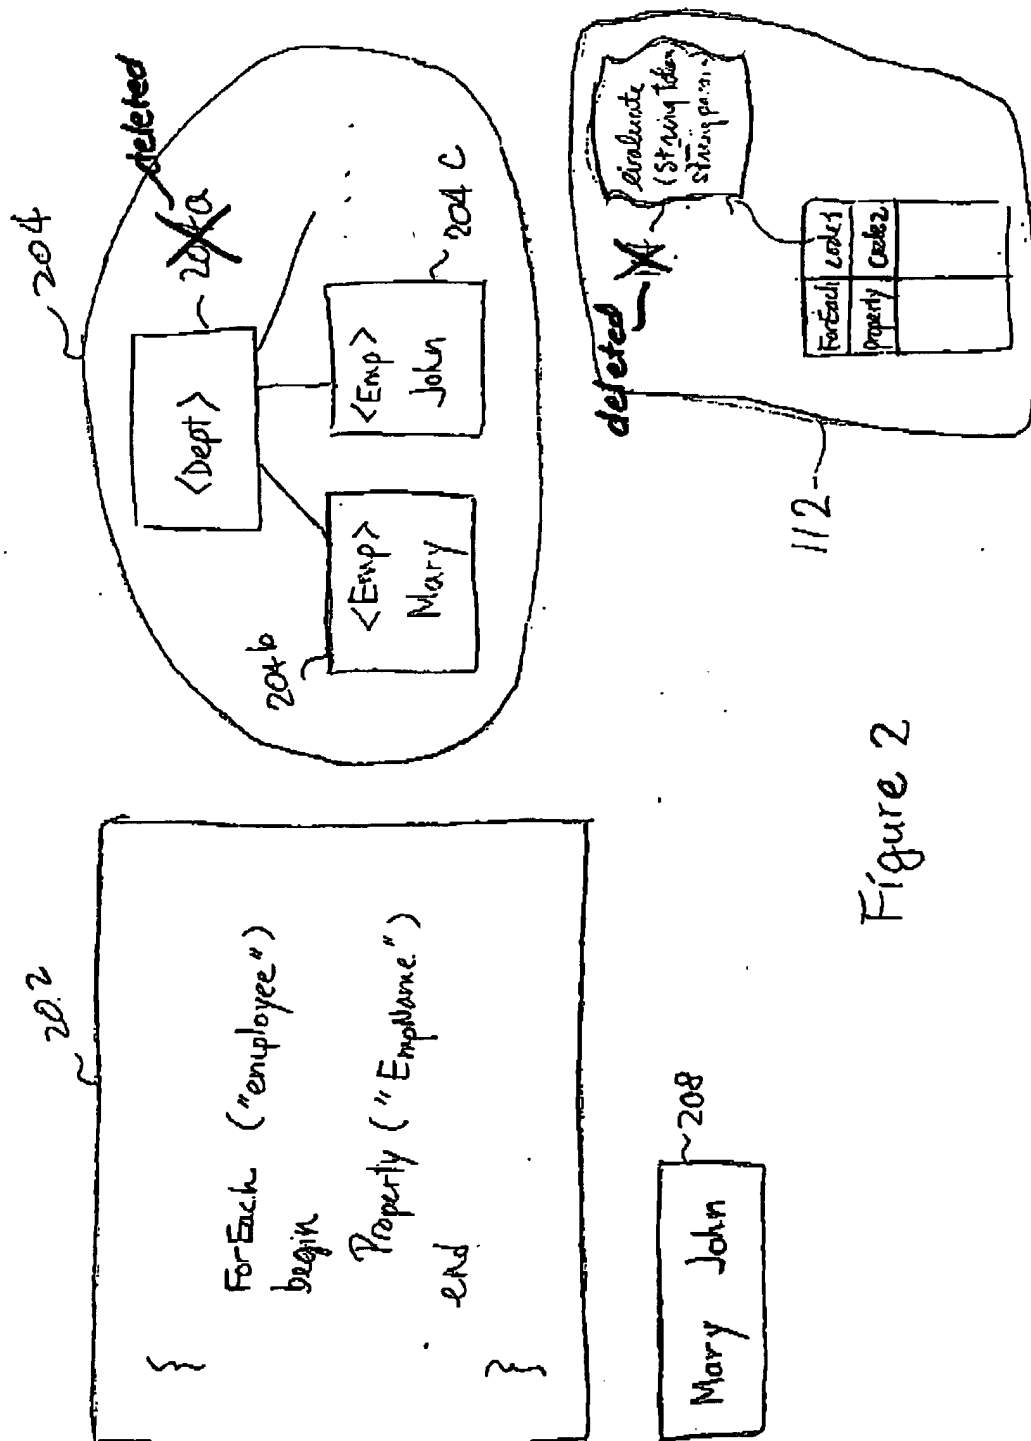 202
{
ForEach ("employee")
begin
Property ("EmpName")
end
}
Mary John
208
204
deleted
204a
<Dept>
204b
<Emp>
Mary
<Emp>
John
204c
...
deleted
evaluate
(String token
String param
ForEach code1
Property Code2
112
Figure 2